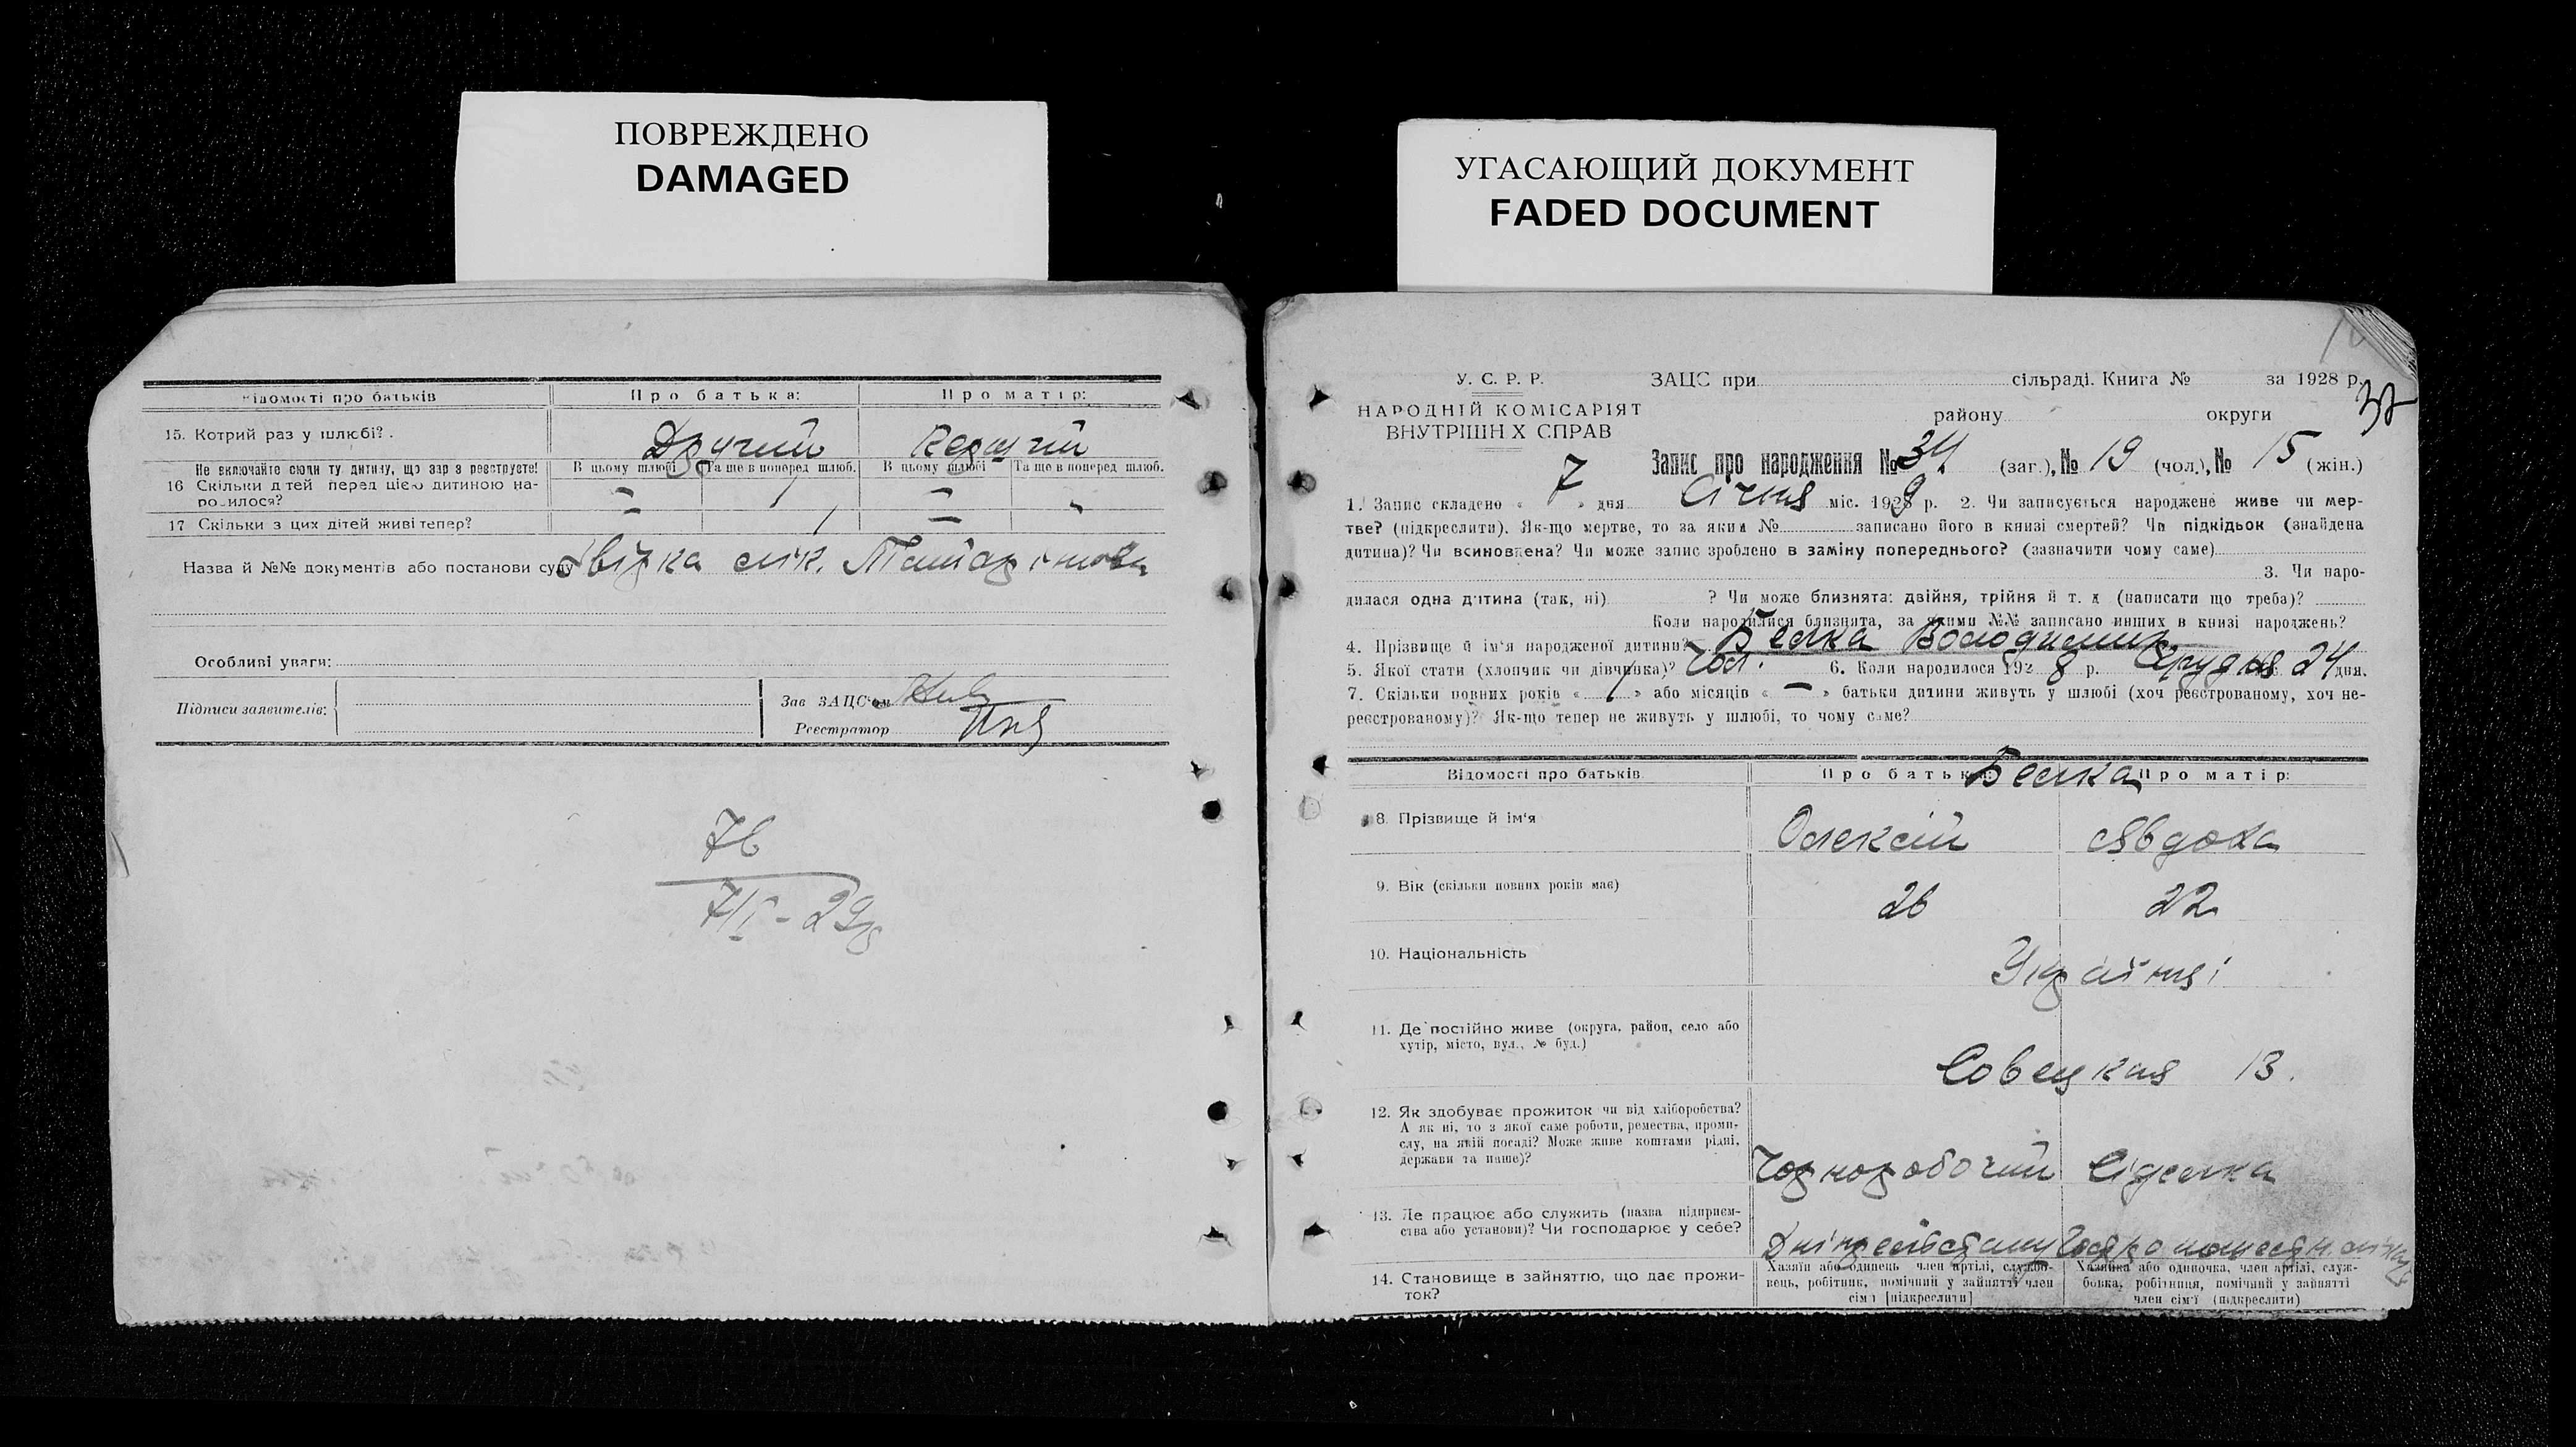 ПОВРЕЖДЕНО
DAMAGED
УГАСАЮЩИЙ ДОКУМЕНТ
FADED DOCUMENT
Відомості про батьків Про батька: Про матір:
15. Котрий раз у шлюбі? Другий Перший
Не включайте сюди ту дитину, що зараз реєструєте! В цьому шлюбі Та ще в поперед шлюб. В цьому шлюбі Та ще в поперед шлюб.
16 Скільки дітей перед цією дитиною на- — 1 — -
родилося?
17 Скільки з цих дітей живі тепер? — 1 —
Назва й №№ документів або постанови суду Звідка лік.
Особливі уваги:
Підписи заявителів:
Зав ЗАЦС'ом
Реєстратор
76
7/I - 29р
У. С. Р. Р.
НАРОДНІЙ КОМІСАРІЯТ
ВНУТРІШНІХ СПРАВ
ЗАЦС при сільраді. Книга № за 1928 р.
37
району округи
Запис про народження № 34 (заг.), № 19 (чол.), № 15 (жін.)
1. Запис складено « 7 » дня Січня міс. 1929 р. 2. Чи записується народжене живе чи мер-
тве? (підкреслити). Як-що мертве, то за яким № записано його в книзі смертей? Чи підкідьок (знайдена
дитина)? Чи всиновлена? Чи може запис зроблено в заміну попереднього? (зазначити чому саме)
3. Чи наро-
дилася одна дитина (так, ні) ? Чи може близнята: двійня, трійня й т. д (написати що треба)?
Коли народилися близнята, за якими №№ записано инших в книзі народжень?
4. Прізвище й ім'я народженої дитини? Белка Володимир
5. Якої стати (хлопчик чи дівчинка)? Чол. 6. Коли народилося 1928 р. Грудня 24 дня.
7. Скільки повних років « 1 » або місяців « — » батьки дитини живуть у шлюбі (хоч реєстрованому, хоч не-
реєстрованому)? Як-що тепер не живуть у шлюбі, то чому саме?
Відомості про батьків Про батька: Белка Про матір:
8. Прізвище й ім'я Олексій Явдоха
9. Вік (скільки повних років має) 26 22
10. Національність Українці
11. Де постійно живе (округа, район, село або
хутір, місто, вул., № буд.)
Совецкая 13.
12. Як здобуває прожиток чи від хліборобства?
А як ні, то з якої саме роботи, ремества, проми-
слу, на якій посаді? Може живе коштами рідні,
держави та инше)?
Чорноробочий Сіделка
13. Де працює або служить (назва підприєм-
ства або установи)? Чи господарює у себе?
14. Становище в зайняттю, що дає прожи-
ток?
Хазяїн або одинець член артілі, службо-
вець, робітник, помічний у зайнятті член
сім'ї [підкреслити]
Хазяйка або одиночка, член артілі, служ-
бовка, робітниця, помічний у зайнятті
член сім'ї (підкреслити)